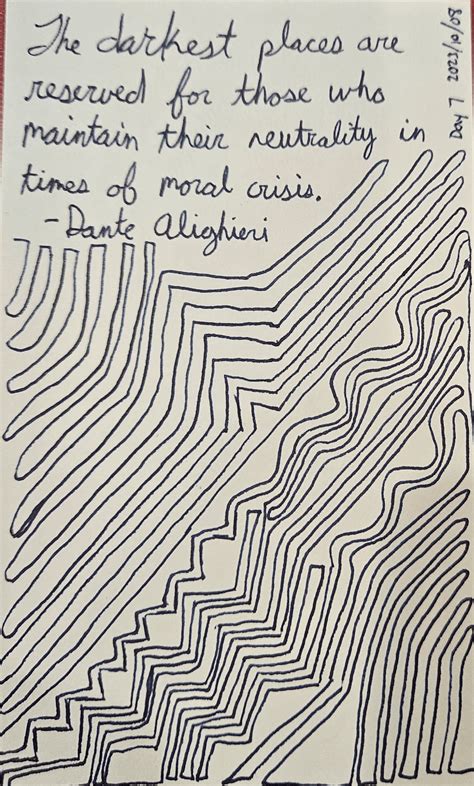 The darkest places are
reserved for those who
maintain their neutrality in
times of moral crisis.
- Dante Alighieri
Day 7 2023/10/08